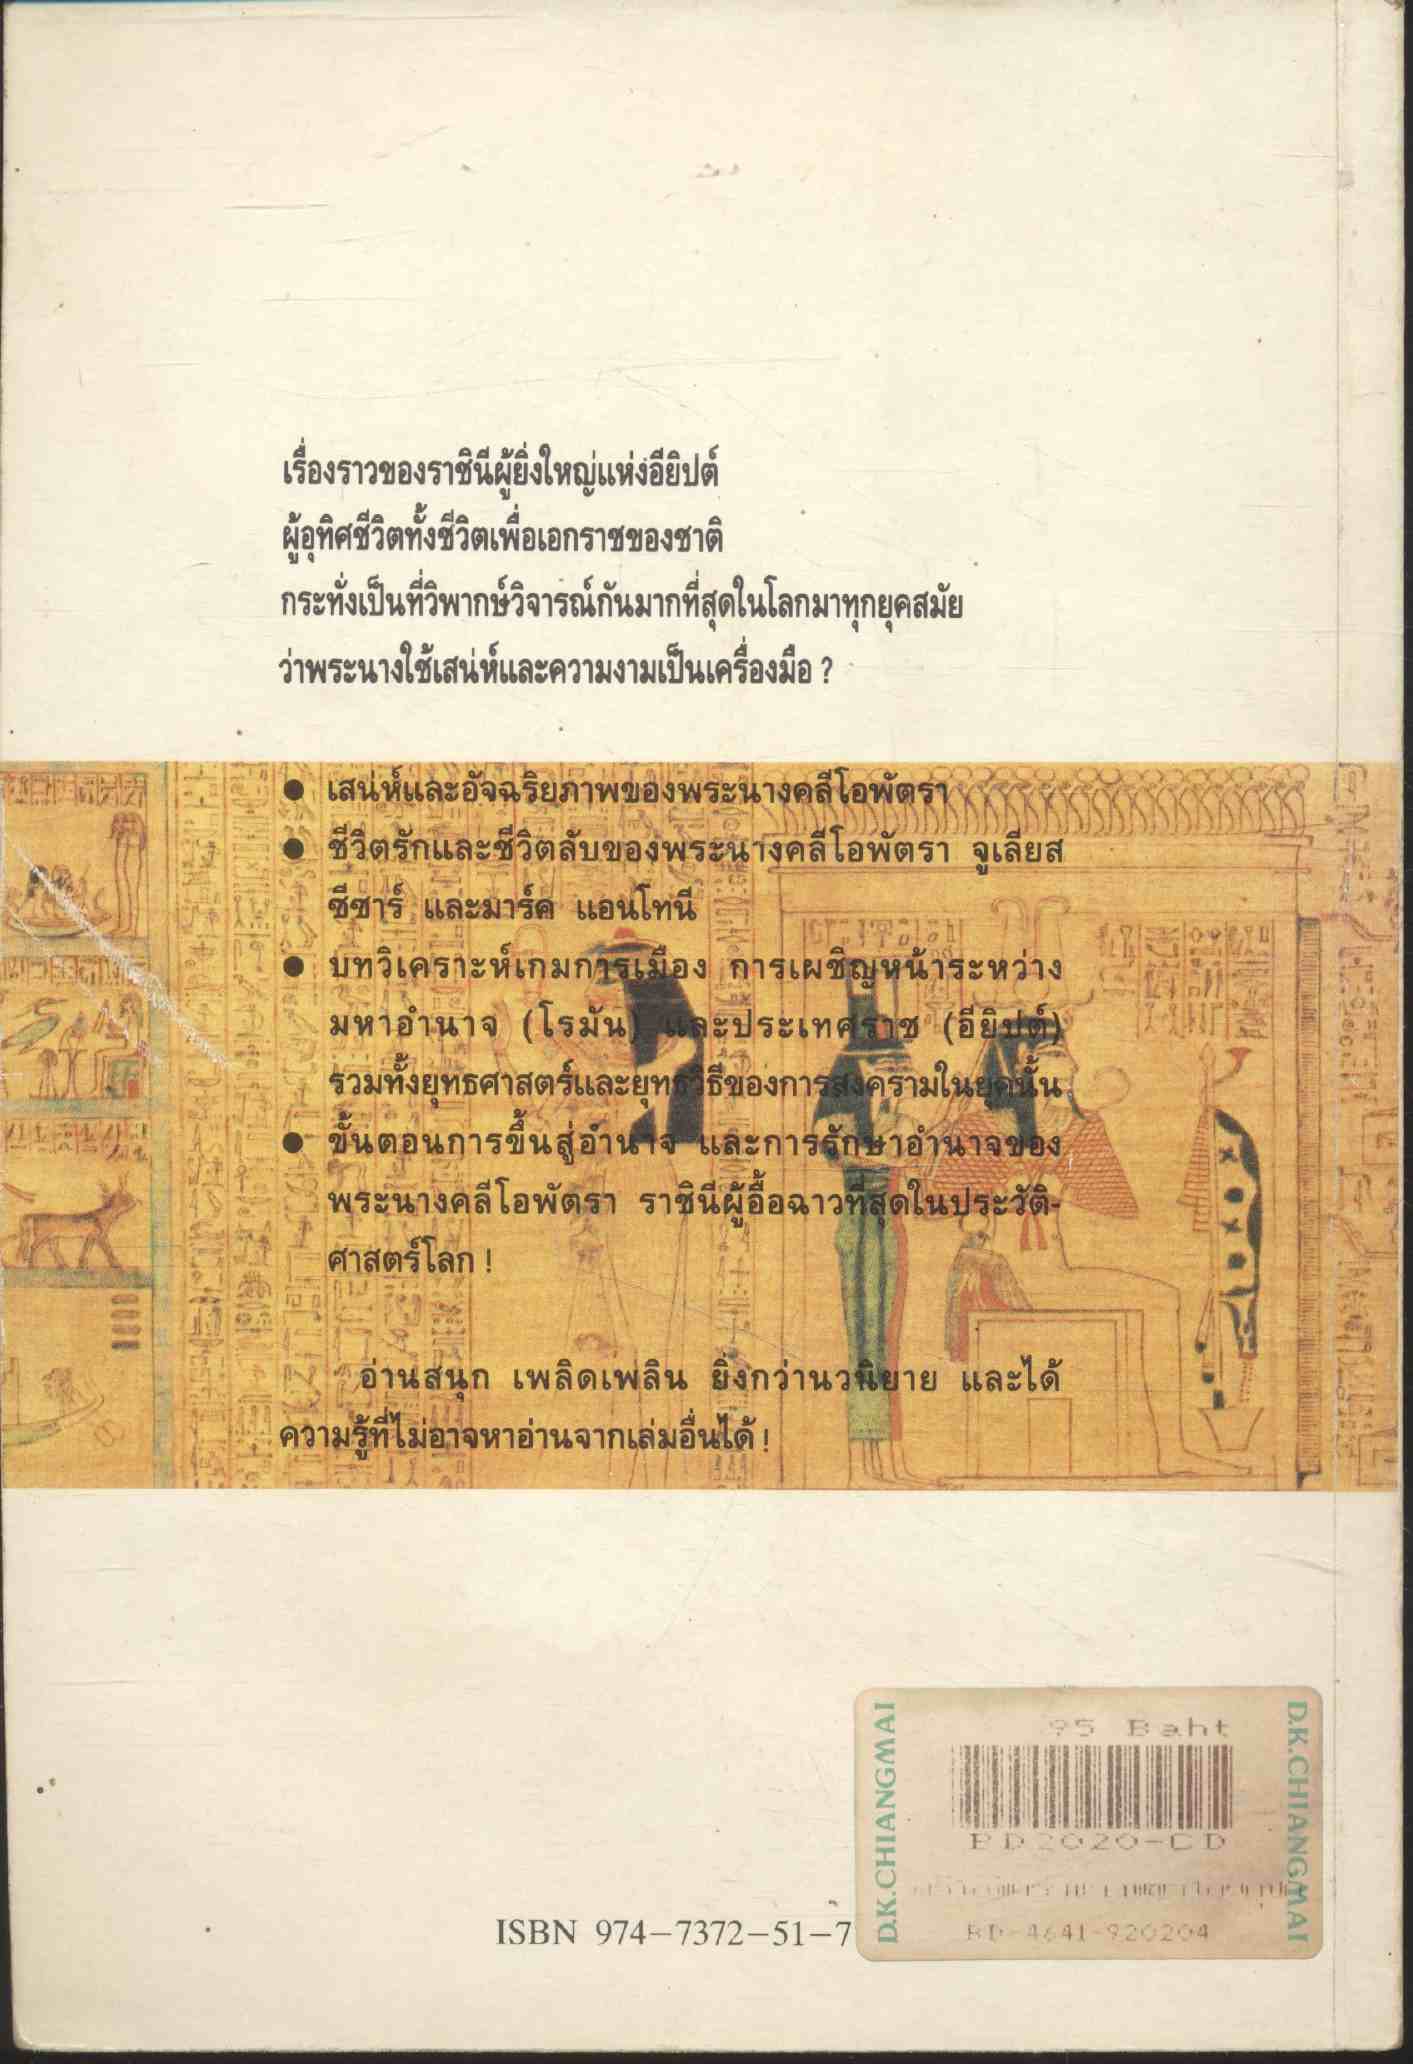 เรื่องราวของราชินีผู้ยิ่งใหญ่แห่งอียิปต์
ผู้อุทิศชีวิตทั้งชีวิตเพื่อเอกราชของชาติ
กระทั่งเป็นที่วิพากษ์วิจารณ์กันมากที่สุดในโลกมาทุกยุคสมัย
ว่าพระนางใช้เสน่ห์และความงามเป็นเครื่องมือ ?
● เสน่ห์และอัจฉริยภาพของพระนางคลีโอพัตรา
● ชีวิตรักและชีวิตลับของพระนางคลีโอพัตรา จูเลียส
ซีซาร์ และมาร์ค แอนโทนี
● บทวิเคราะห์เกมการเมือง การเผชิญหน้าระหว่าง
มหาอำนาจ (โรมัน) และประเทศราช (อียิปต์)
รวมทั้งยุทธศาสตร์และยุทธวิธีของการสงครามในยุคนั้น
● ขั้นตอนการขึ้นสู่อำนาจ และการรักษาอำนาจของ
พระนางคลีโอพัตรา ราชินีผู้อื้อฉาวที่สุดในประวัติ-
ศาสตร์โลก !
อ่านสนุก เพลิดเพลิน ยิ่งกว่านวนิยาย และได้
ความรู้ที่ไม่อาจหาอ่านจากเล่มอื่นได้ !
D.K.CHIANGMAI
95 Baht
BD2020-CD
BD-4641-920204
D.K.CHIANGMAI
ISBN 974-7372-51-7